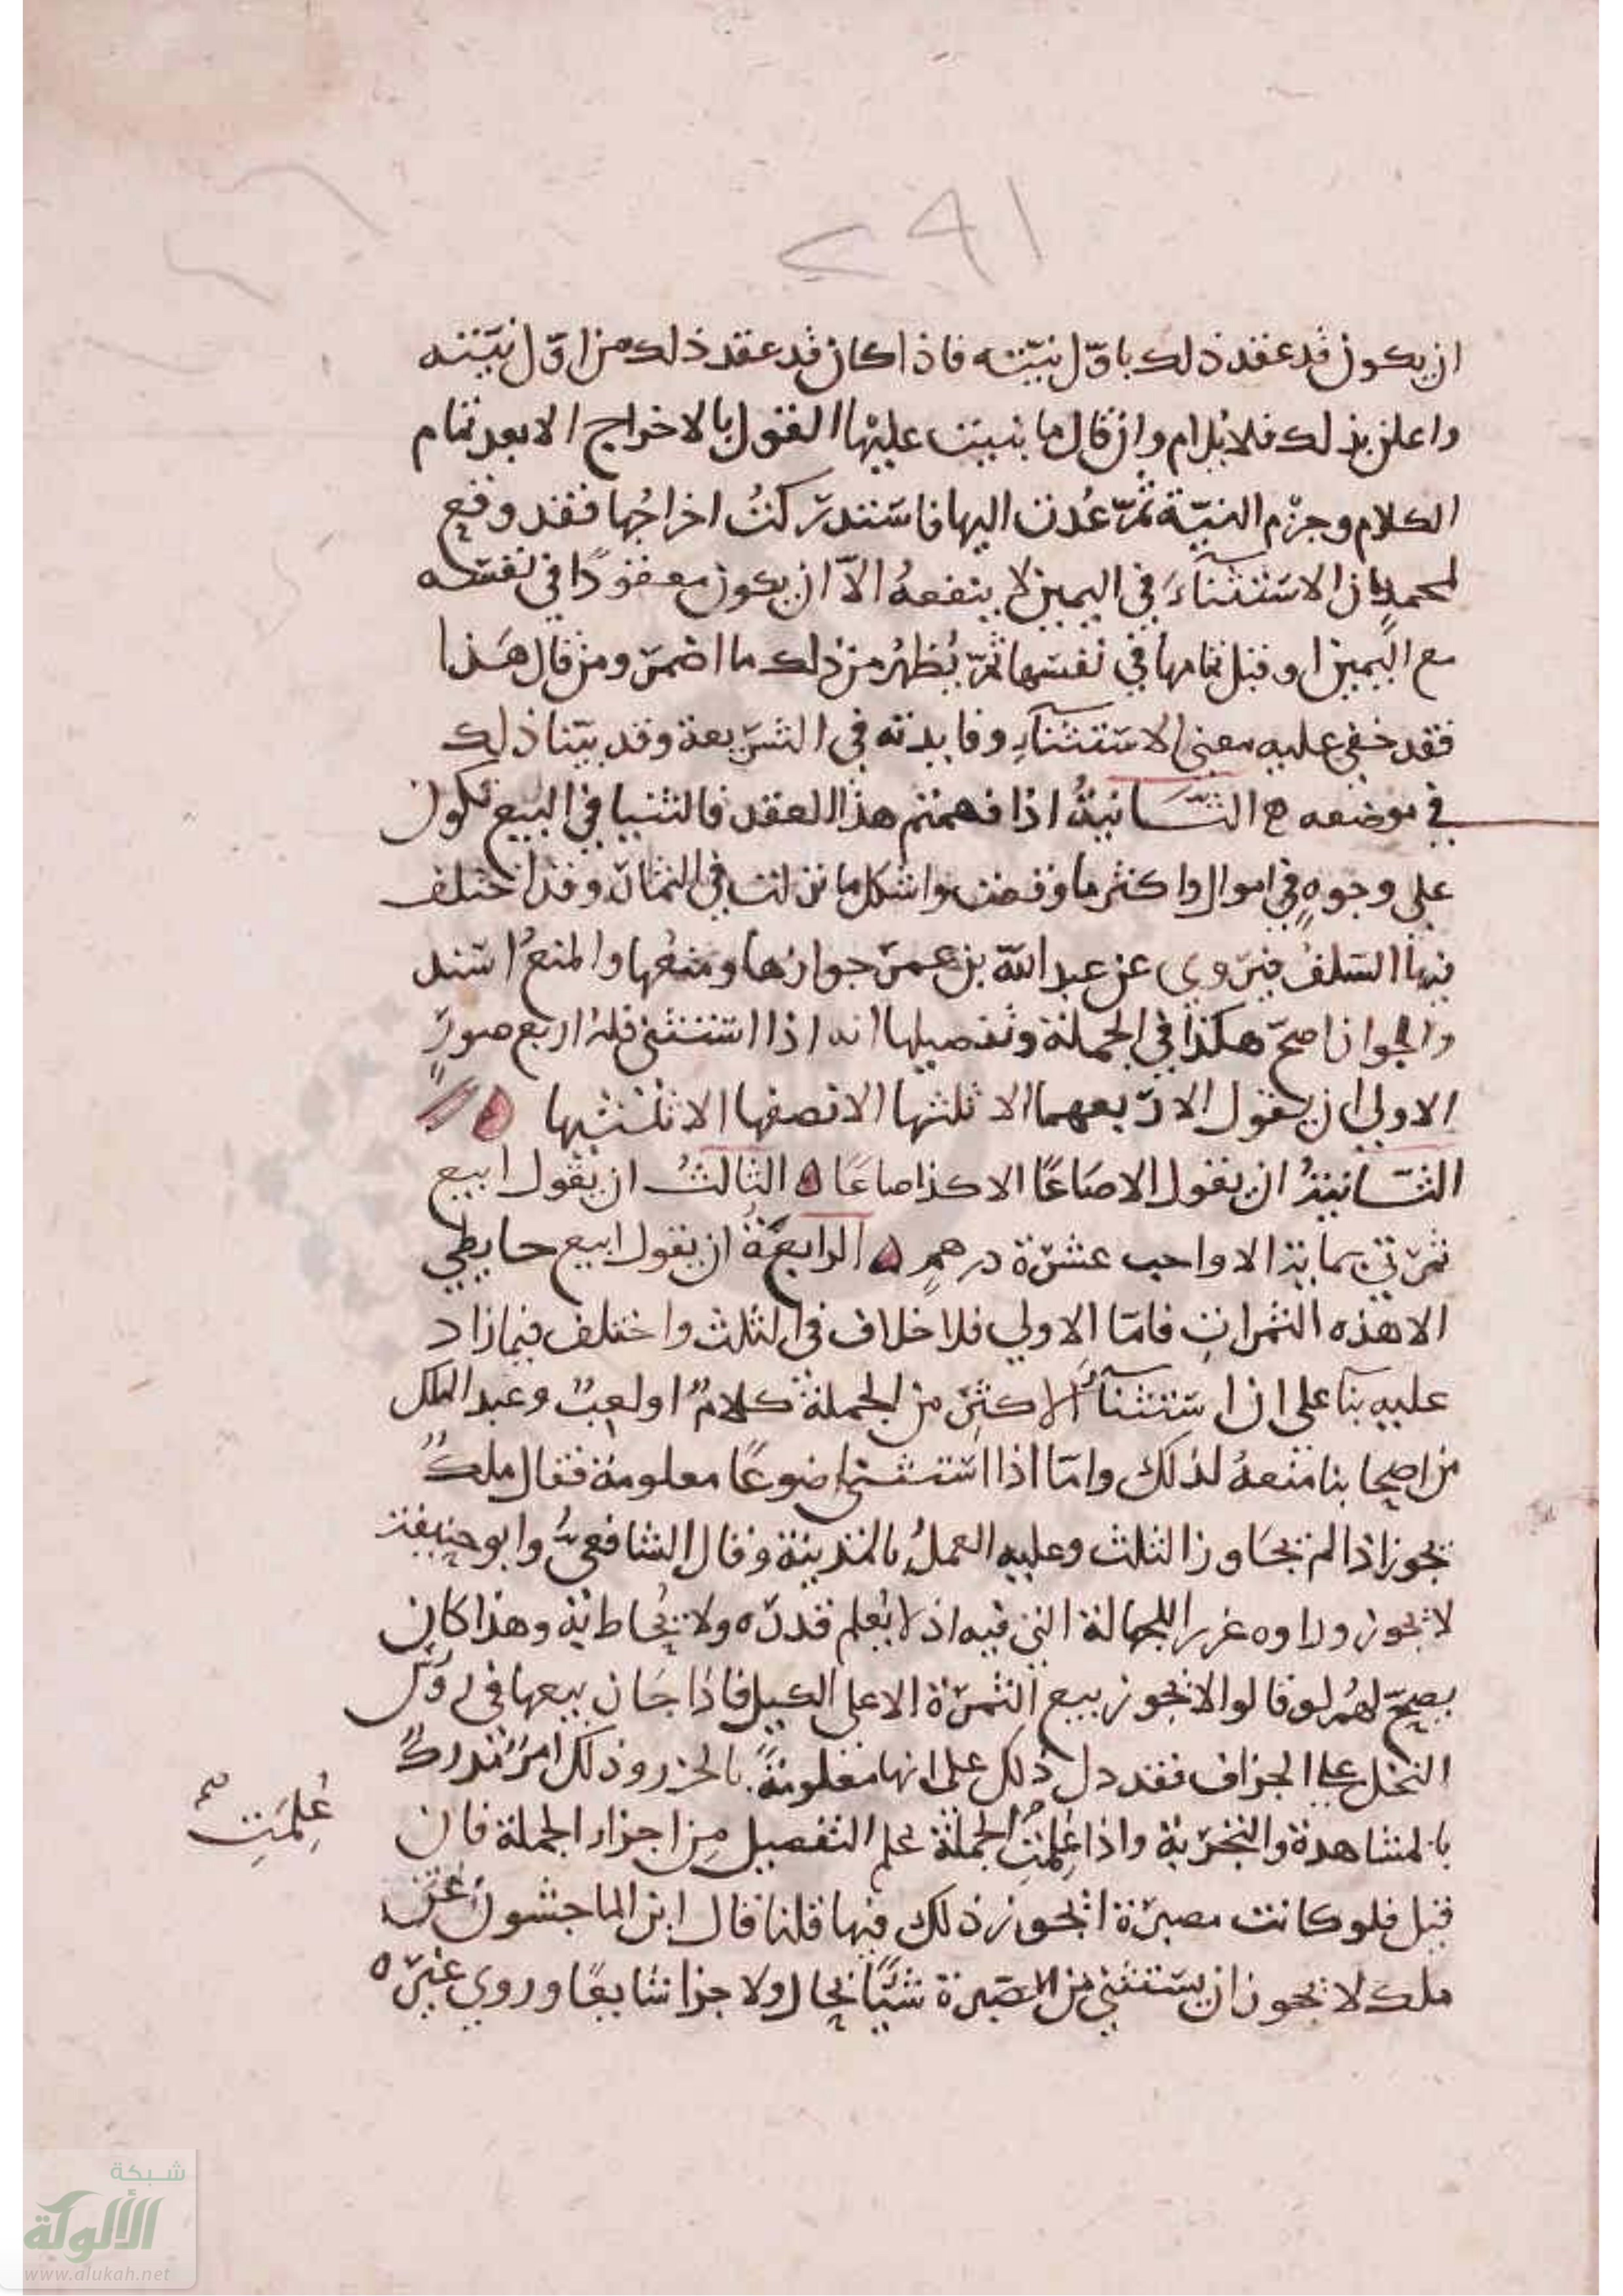 ١٩٢
ان يكون قد عقد ذلك باوّل نيّته فاذا كان قد عقد ذلك من اوّل نيّته
واعلن بذلك فلا يلام وان قال ما بنيت عليها القول بالاخراج الا بعد تمام
الكلام وجزم النيّة ثمّ عُدت اليها فاستدركتُ اخراجُها فقد وقع
لمحمدٍ ان الاستثناءَ في اليمين لا ينفعهُ الاّ ان يكون معقودًا في نفسه
مع اليمين او قبل تمامها في نفسها ثمّ يُظهرُ من ذلك ما اضمر ومن قال هذا
فقد خفي عليه معنى الاستثناءِ وفايدته في الشريعة وقد بيّنا ذلك
في موضعه ه الثّانيةُ اذا فهمتم هذا العقد فالثنيا في البيع تكون
على وجوهٍ في اموال واكثر ما وقعت واشكل ما نزلت في الثمار وقد اختلف
فيها السلفُ فيروى عن عبد اللّه بن عمر جوازها ومنعُها والمنعُ اسند
والجواز اصحّ هكذا في الجملة وتفصيلها انه اذا استثنى فله اربع صورٍ
الاولى ان يقول الا ربعها الا ثلثها الا نصفها الا ثلثيها ه
الثّانيةُ ان يقول الا صاعًا الا كذا صاعًا ه الثالثُ ان يقول ابيع
ثمرتي بماية الا واحب عشرة درهمٍ ه الرابعةُ ان يقول ابيع حايطي
الا هذه الثمراتِ فامّا الاولى فلا خلاف في الثلث واختلف فيما زاد
عليه بنآ على ان استثناءُ الاكثر من الجملة كلامٌ او لعبٌ وعبد الملك
من اصحابنا منعهُ لذلك وامّا اذا استثنى اضوعًا معلومة فقال ملكٌ
يجوز اذا لم يجاوز الثلث وعليه العملُ بالمدينة وقال الشافعيُّ وابو حنيفة
لا يجوز وراوه غررا للجهالة التي فيه اذ لا يُعلم قدره ولا يُحاط به وهذا كان
يصحّ لهُم لو قالوا لا يجوز بيع الثمرة الا على الكيل فاذا جَاز بيعها في روس
النخل على الجزاف فقد دل ذلك على انها معلومةٌ بالحزر وذلك امرٌ مُدركٌ
بالمشاهدة والتجربة واذا عُلِمَتِ الجُملة علم التفصيل مِن اجزاء الجملة فان
عُلِمَتِ صح
قيل فلو كانت مصبرة ايجوز ذلك فيها قلنا قال ابن الماجشون عن
ملك لا يجوز ان يستثني من الصبرة شيًا بحال ولا جزا شايعًا وروى غيره
شبكة
الألوكة
www.alukah.net